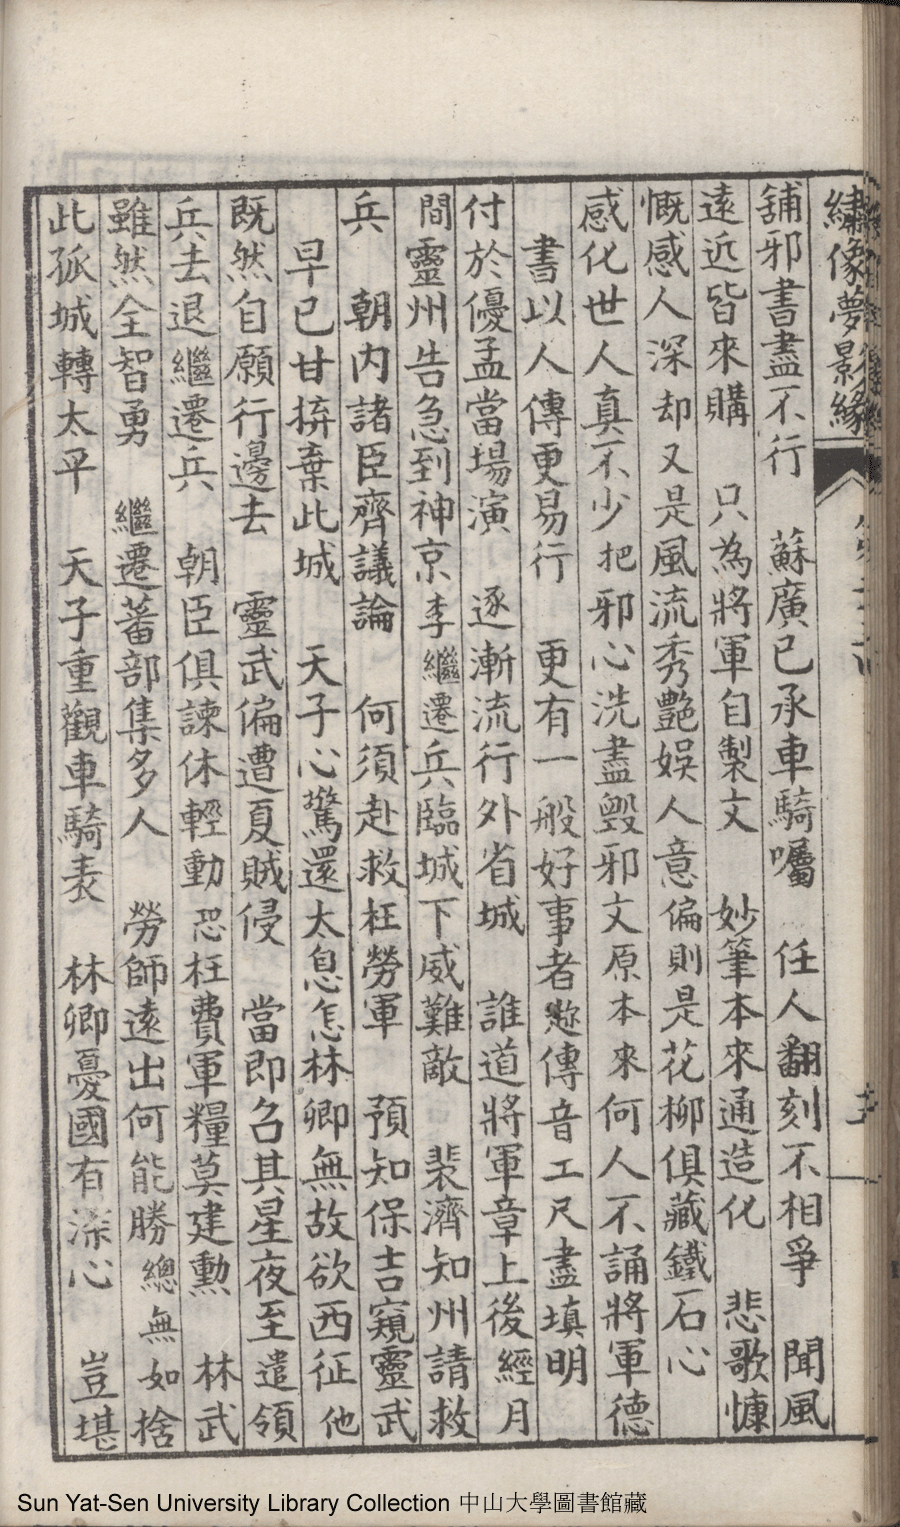 繡像夢影緣
舖邪書盡不行　蘇廣已承車騎囑　任人翻刻不相爭　聞風
遠近皆來購　只為將軍自製文　妙筆本來通造化　悲歌慷
慨感人深却又是風流秀艷娛人意偏則是花柳俱藏鐵石心
感化世人真不少把邪心洗盡毀邪文原本來何人不誦將軍德
書以人傳更易行　更有一般好事者愬傳音工尺盡填明
付於優孟當場演　逐漸流行外省城　誰道將軍章上後經月
間靈州告急到神京李繼遷兵臨城下威難敵　裴濟知州請救
兵　朝內諸臣齊議論　何須赴救枉勞軍　預知保吉窺靈武
早已甘捹棄此城　天子心驚還太息怎林卿無故欲西征他
既然自願行邊去　靈武偏遭夏賊侵　當即召其星夜至遣領
兵去退繼遷兵　朝臣俱諫休輕動恐枉費軍糧莫建勳　林武
雖然全智勇　繼遷蕃部集多人　勞師遠出何能勝總無如捨
此孤城轉太平　天子重觀車騎表　林卿憂國有深心　豈堪
Sun Yat-Sen University Library Collection 中山大學圖書館藏